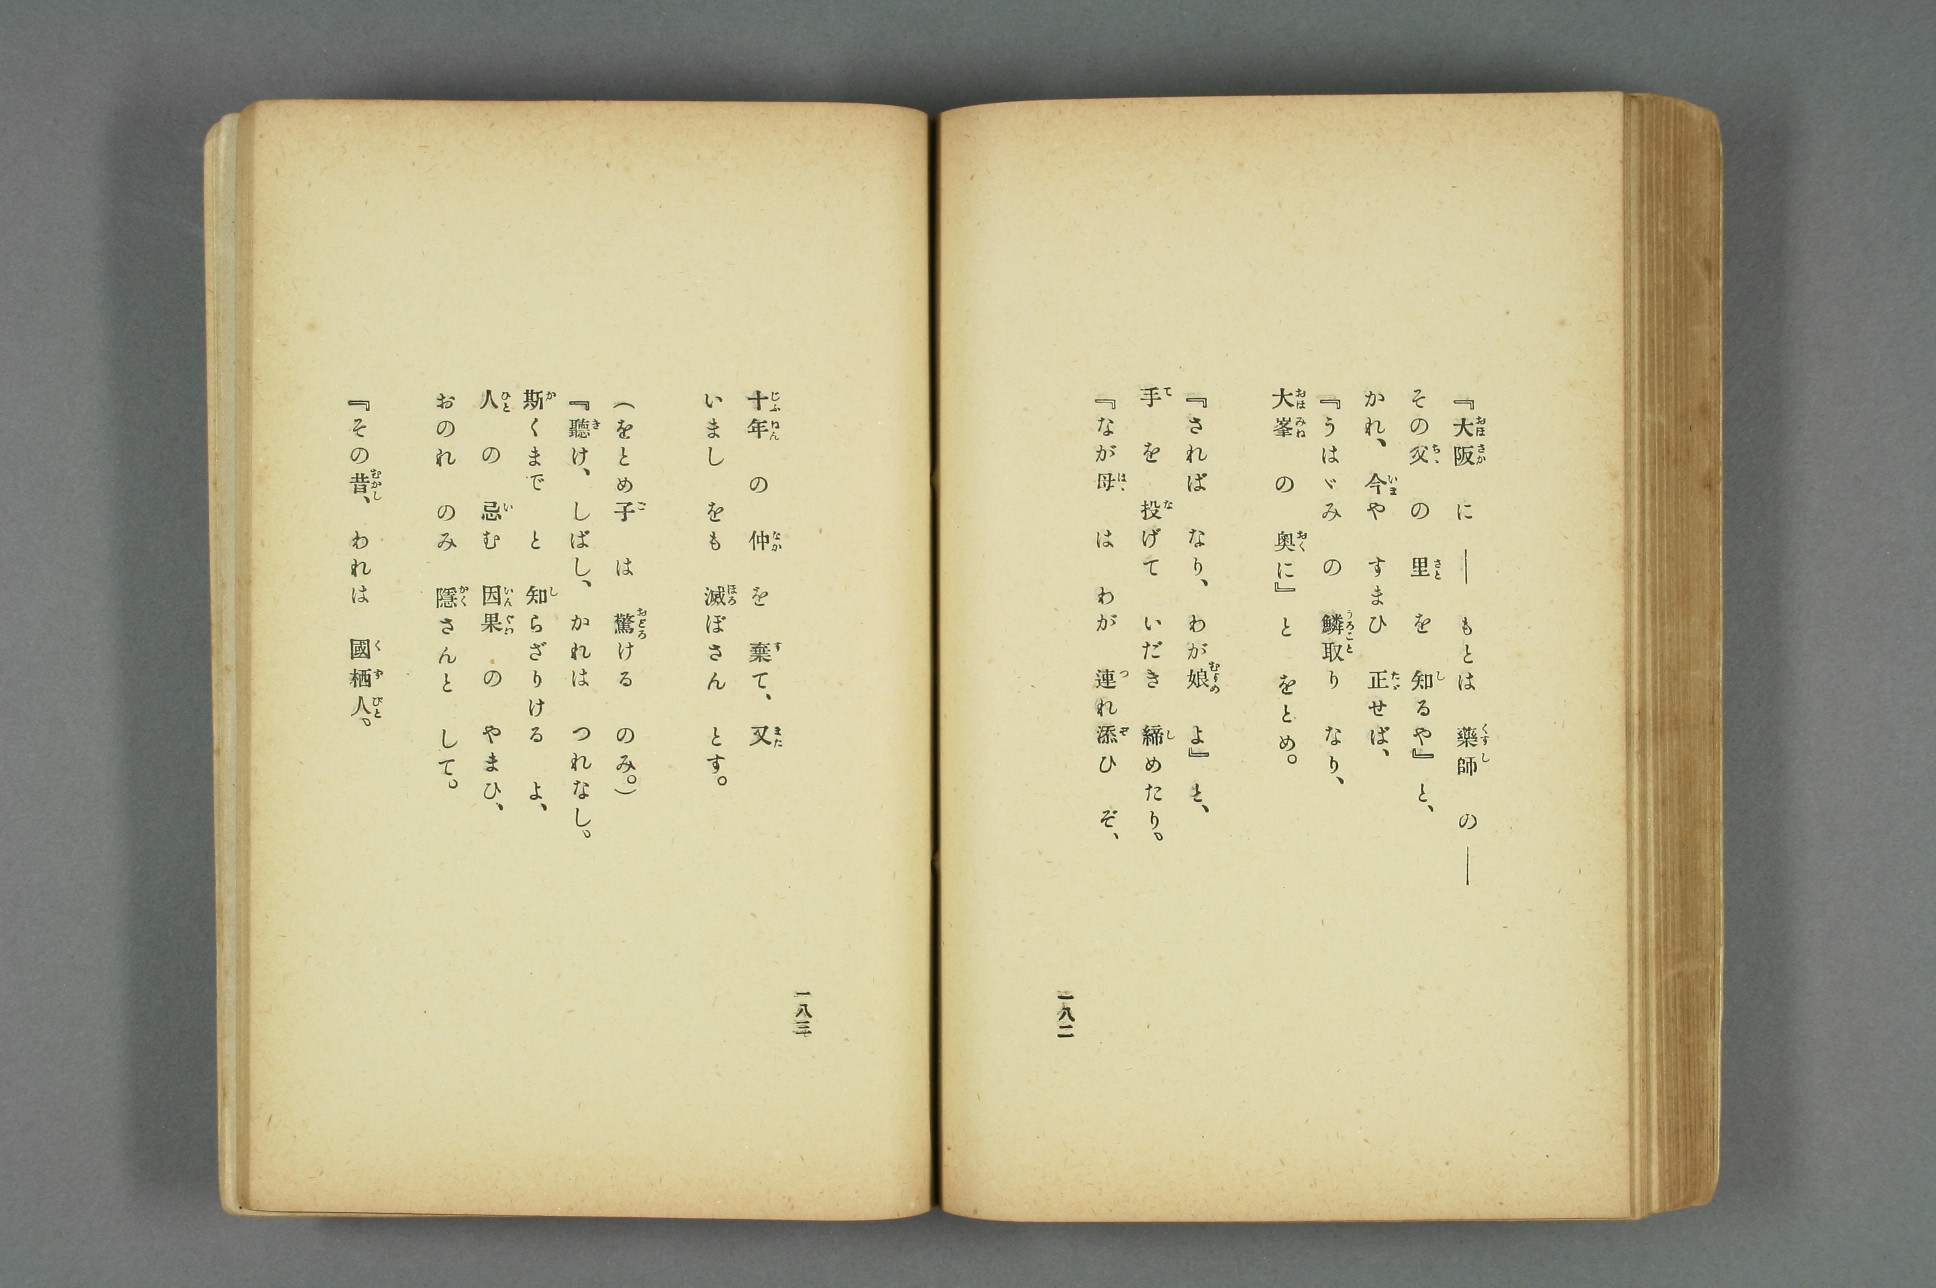 『大阪 に ― もとは 藥師 の ―
その父 の 里 を 知るや』と、
かれ、今や すまひ 正せば、
『うはゞみ の 鱗取り なり、
大峯 の 奥に』と をとめ。
『されば なり、わが娘 よ』と、
手 を 投げて いだき 締めたり。
『なが母 は わが 連れ添ひ ぞ、
一八二
十年 の 仲 を 棄て、又
いまし をも 滅ぼさん とす。
(をとめ子 は 驚ける のみ。)
『聽け、しばし、かれは つれなし。
斯くまで と 知らざりける よ、
人 の 忌む 因果 の やまひ、
おのれ のみ 隱さんと して。
『その昔、われは 國栖人。
一八三